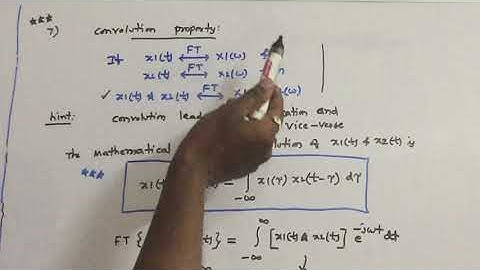 ***
7) convolution property:
If x1(t) ⟷FT x1(ω)
x2(t) ⟷FT x2(ω)
✓ x1(t) * x2(t) ⟷FT (ω)
Hint: convolution and
vice-versa
The Mathematical of x1(t) & x2(t) is
*** x1(t) = ∫_{-∞}^{∞} x1(τ) x2(t-τ) dτ
FT { t) } = ∫_{-∞}^{∞} [x1(t) * x2(t)] e^{-jωt} dt